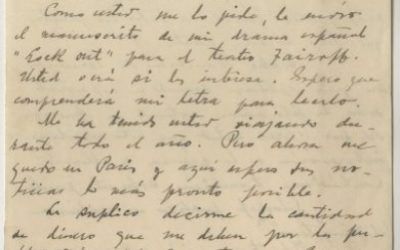 Como usted me lo pide, le envío
el manuscrito de mi drama español
"Lock out" para el teatro Fairoff.
Usted verá si les interesa. Espero que
comprenderá mi letra para leerlo.
Me ha tenido usted viajando du-
rante todo el año. Pero ahora me
quedo en París y aquí espero sus no-
ticias lo más pronto posible.
Le suplico decirme la cantidad
de dinero que me deben por las pu-